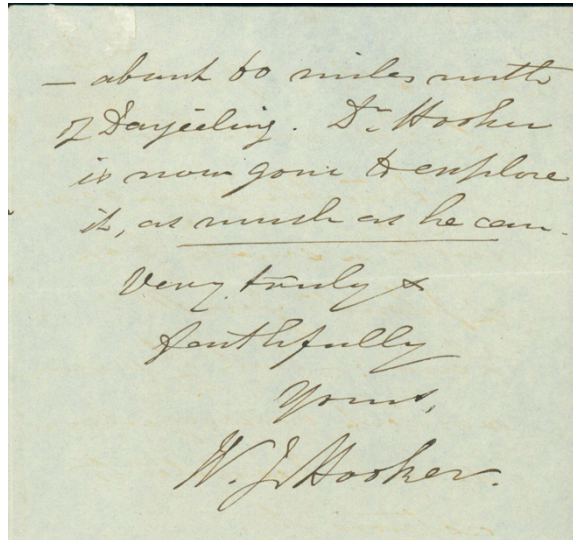 — about 60 miles north
of Darjeeling. Dr. Hooker
is now gone to explore
it, as much as he can.
Very truly &
faithfully
Yours,
W. J. Hooker.